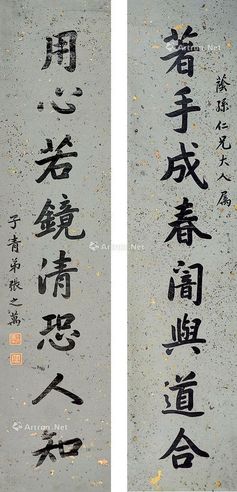 蔭孫仁兄大人属
著手成春闇與道合
用心若鏡清恐人知
子青弟張之萬
Artron.Net
Artron.Net
Artron.Net
Artron.Net